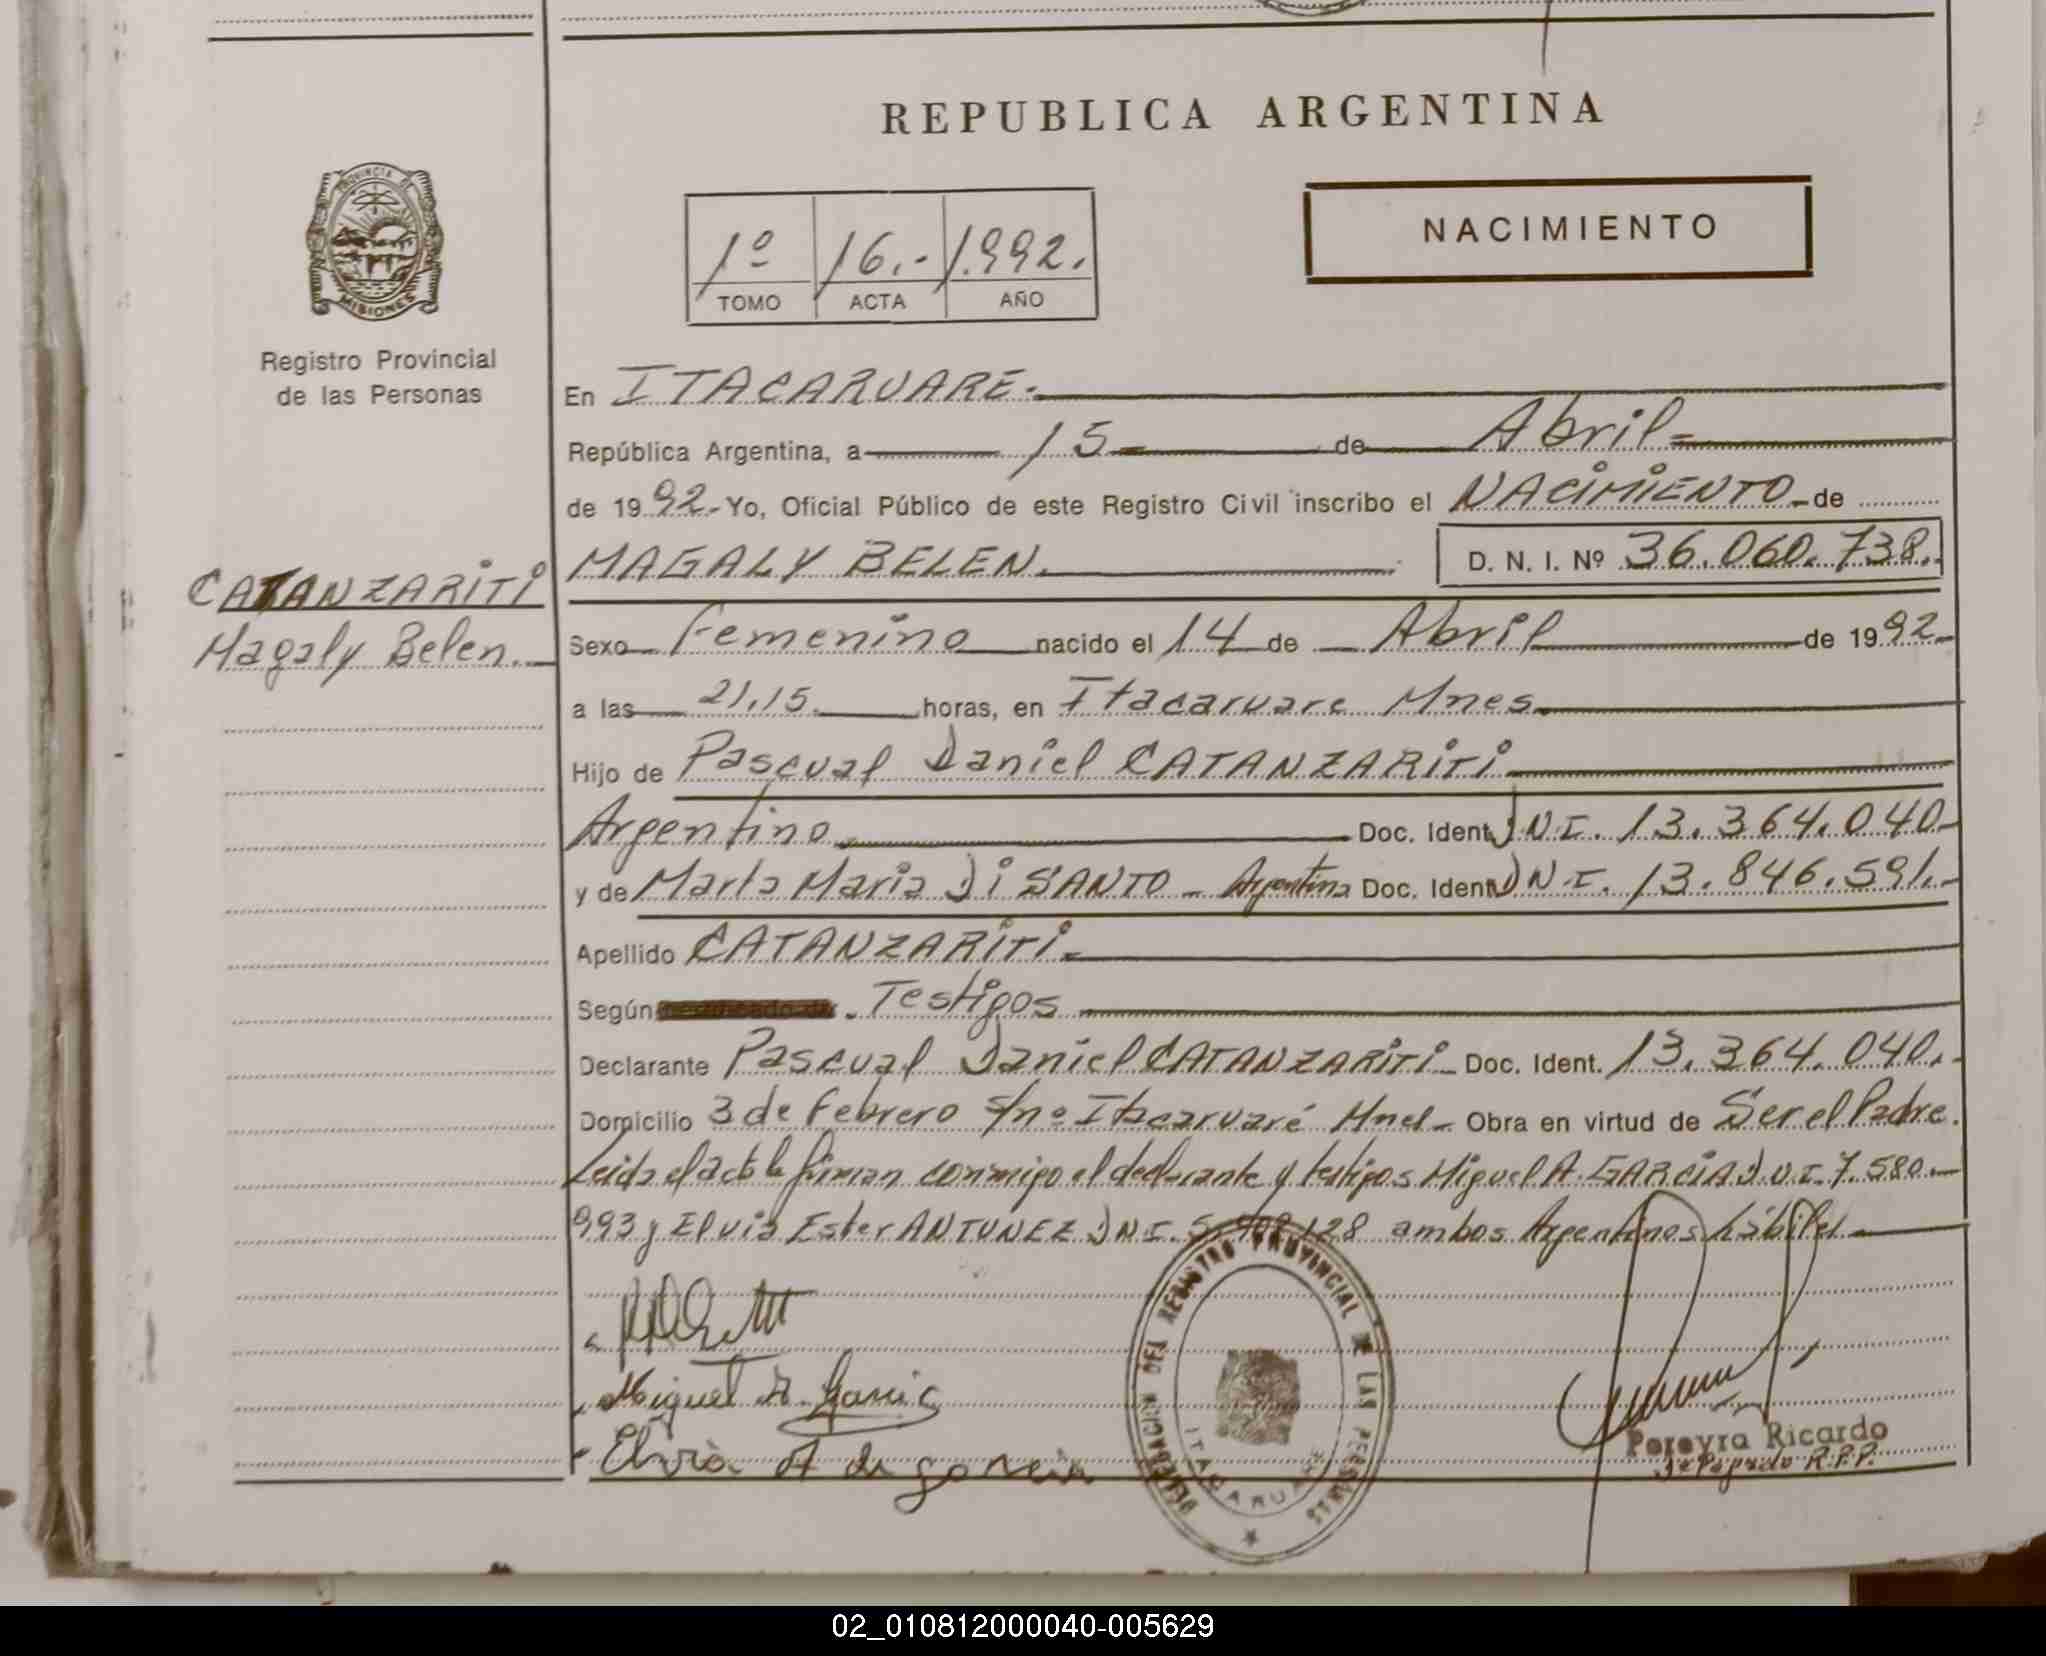 REPUBLICA ARGENTINA
NACIMIENTO
1º 16.- 1.992.
TOMO ACTA AÑO
PROVINCIA DE
MISIONES
Registro Provincial
de las Personas
En ITACARUARE.
República Argentina, a 15 de Abril
de 1992. Yo, Oficial Público de este Registro Civil inscribo el NACIMIENTO de
MAGALY BELEN. D. N. I. Nº 36.060.738.
CATANZARITI
Magaly Belen.
Sexo Femenino nacido el 14 de Abril de 1992
a las 21,15 horas, en Itacaruare Mnes
Hijo de Pascual Daniel CATANZARITI
Argentino Doc. Ident. DNI. 13.364.040
y de Marta Maria Di SANTO - Argentina Doc. Ident. DNI. 13.846.591.
Apellido CATANZARITI
Según Testigos
Declarante Pascual Daniel CATANZARITI Doc. Ident. 13.364.040.
Domicilio 3 de Febrero s/nº Itacaruaré Mnes Obra en virtud de Ser el Padre.
Leida el acta la firman conmigo el declarante y testigos Miguel A. GARCIA D.N.I. 7.580.
993 y Elvia Ester ANTUNEZ DNI. 128 ambos Argentinos hábiles
Miguel A. Garcia
Elvia A de garcia
DELEGACION DEL REGISTRO PROVINCIAL DE LAS PERSONAS
ITACARUARE
Pereyra Ricardo
R.P.P.
02_010812000040-005629